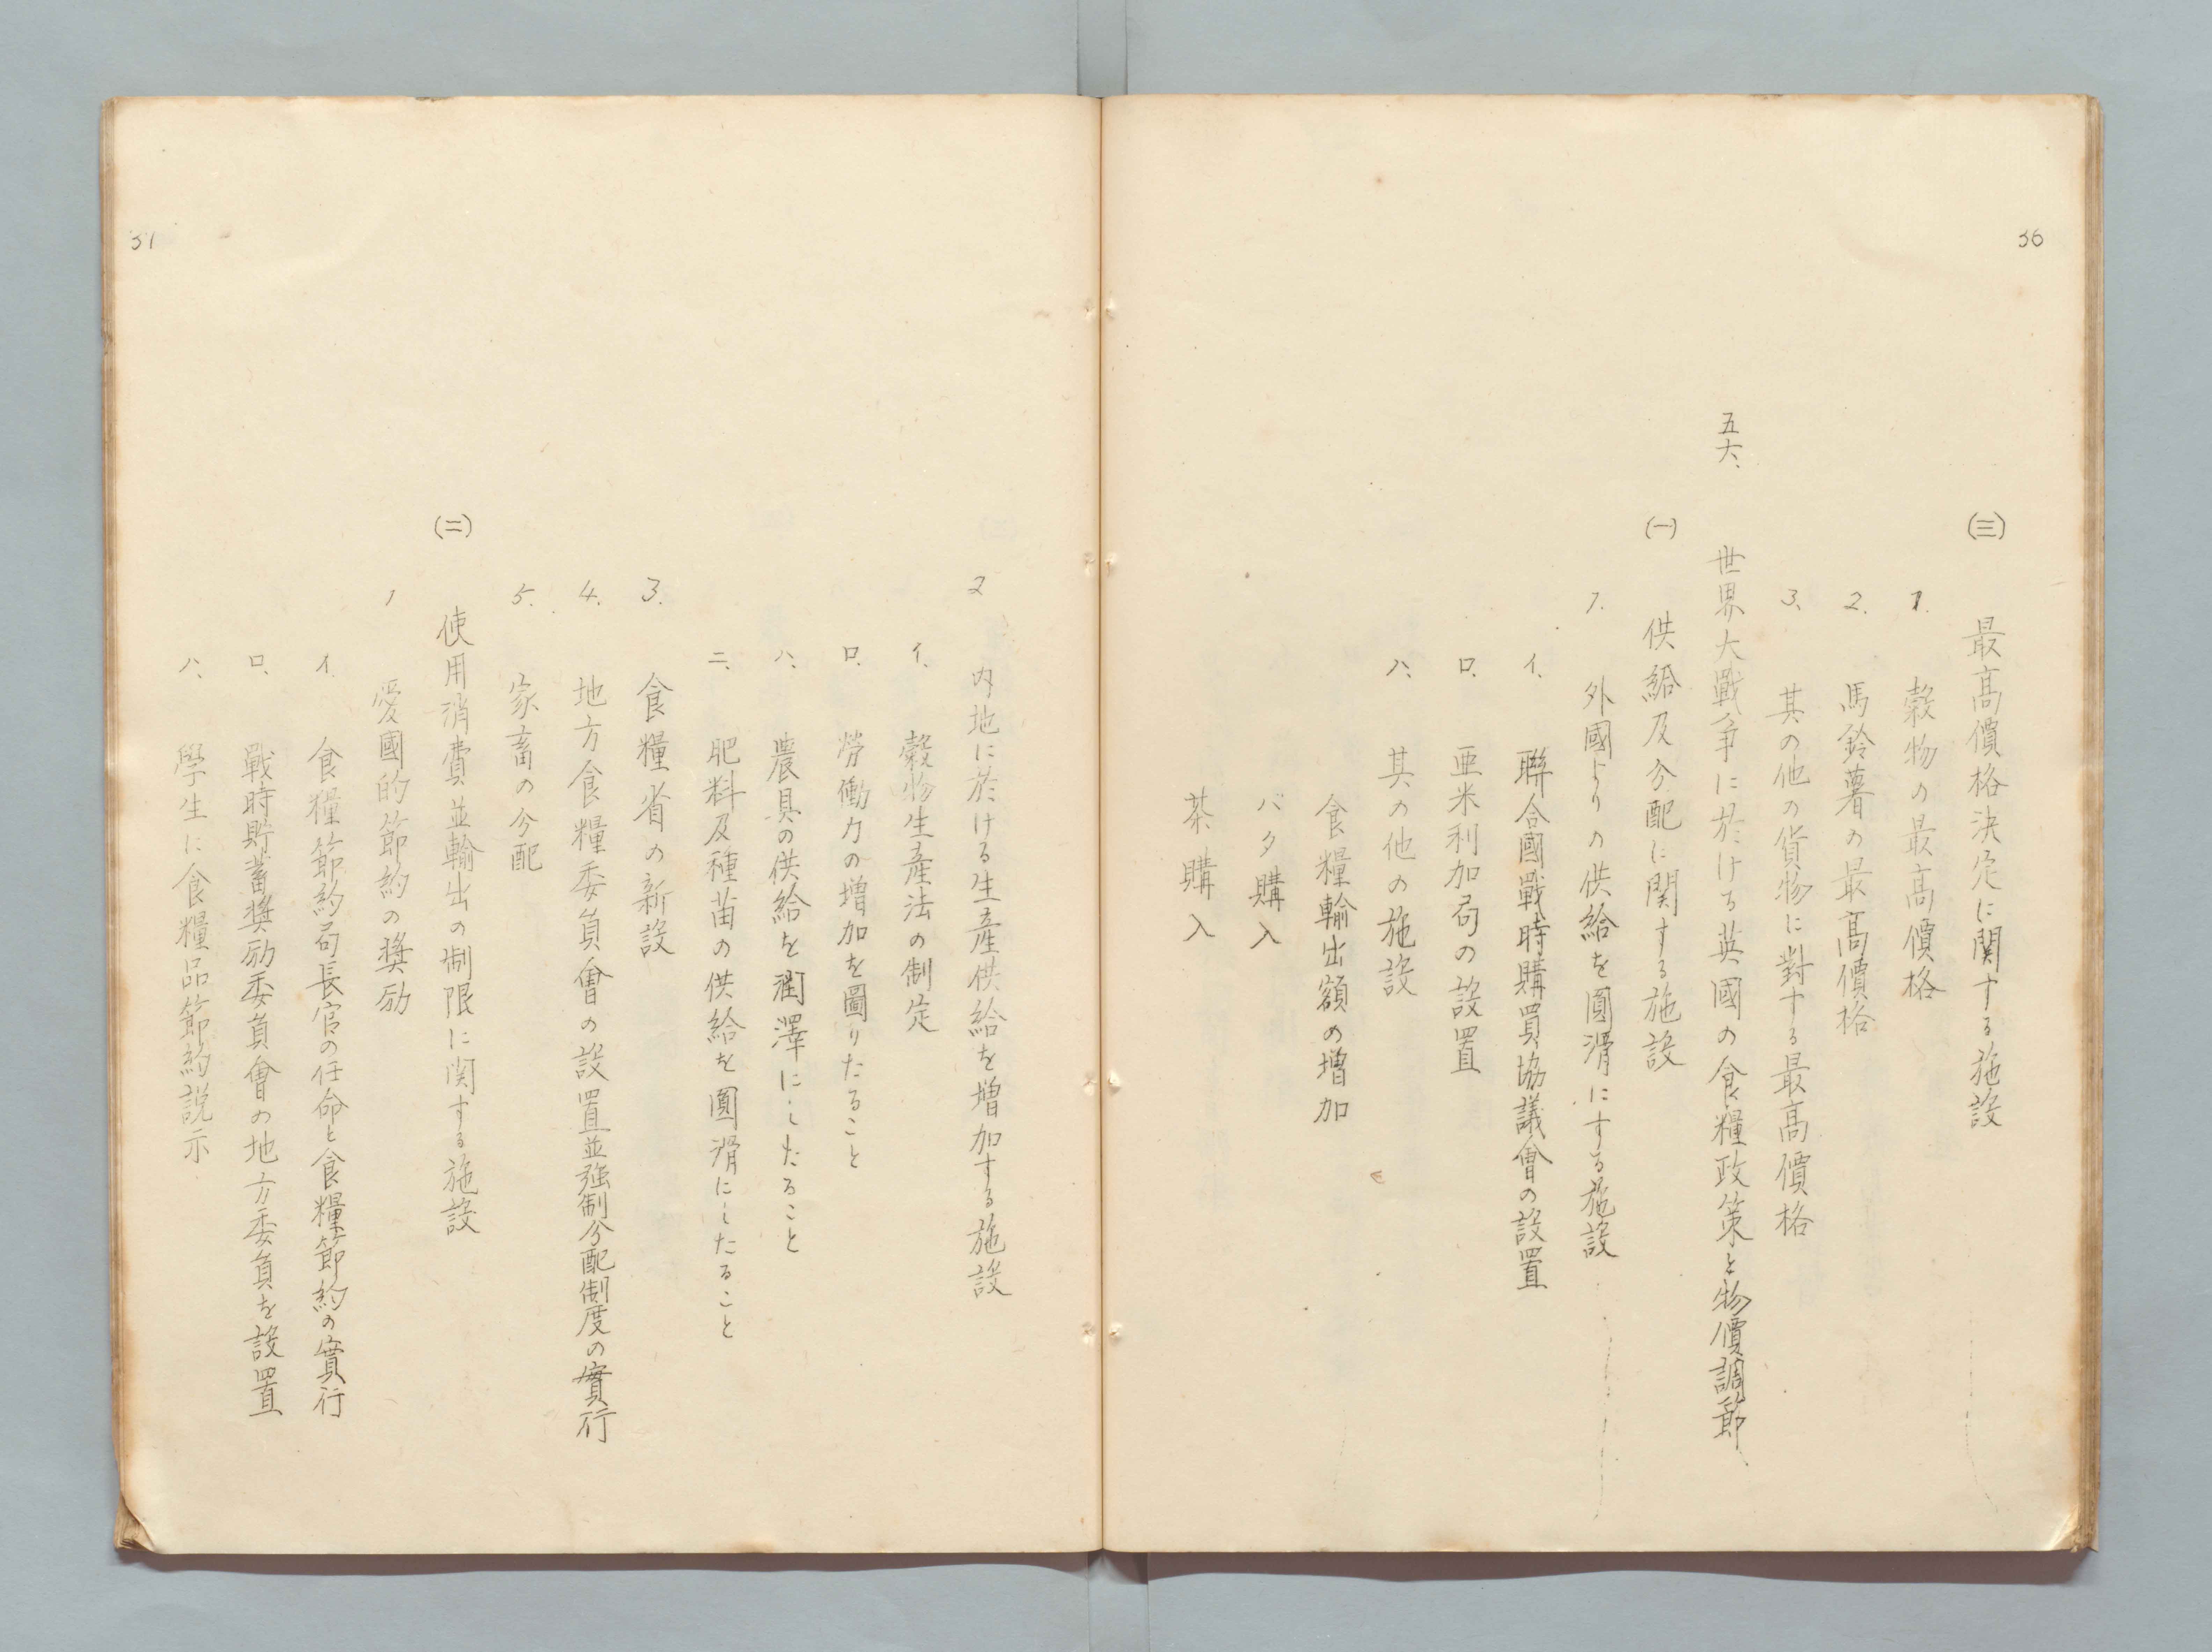 36
(三) 最高價格決定に関する施設
1. 穀物の最高價格
2. 馬鈴薯の最高價格
3. 其の他の貨物に對する最高價格
五六、世界大戰争に於ける英國の食糧政策と物價調節
(一) 供給及分配に関する施設
1. 外國よりの供給を圓滑にする施設
イ. 聯合國戰時購買協議會の設置
ロ. 亜米利加局の設置
ハ. 其の他の施設
食糧輸出額の増加
バタ購入
茶購入
37
2 内地に於ける生産供給を増加する施設
イ. 穀物生産法の制定
ロ. 勞働力の増加を圖りたること
ハ. 農具の供給を潤澤にしたること
ニ. 肥料及種苗の供給を圓滑にしたること
3. 食糧省の新設
4. 地方食糧委員會の設置並強制分配制度の實行
5. 家畜の分配
(二) 使用消費並輸出の制限に関する施設
1 愛國的節約の奬励
イ. 食糧節約局長官の任命と食糧節約の實行
ロ. 戰時貯蓄奬励委員會の地方委員を設置
ハ. 學生に食糧品節約説示